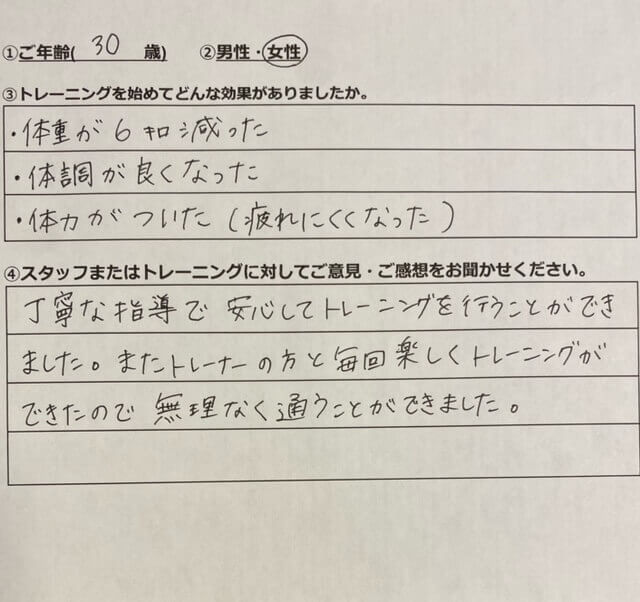 ①ご年齢( 30 歳) ②男性・女性
③トレーニングを始めてどんな効果がありましたか。
・体重が6キロ減った
・体調が良くなった
・体力がついた(疲れにくくなった)
④スタッフまたはトレーニングに対してご意見・ご感想をお聞かせください。
丁寧な指導で安心してトレーニングを行うことができ
ました。またトレーナーの方と毎回楽しくトレーニングが
できたので無理なく通うことができました。